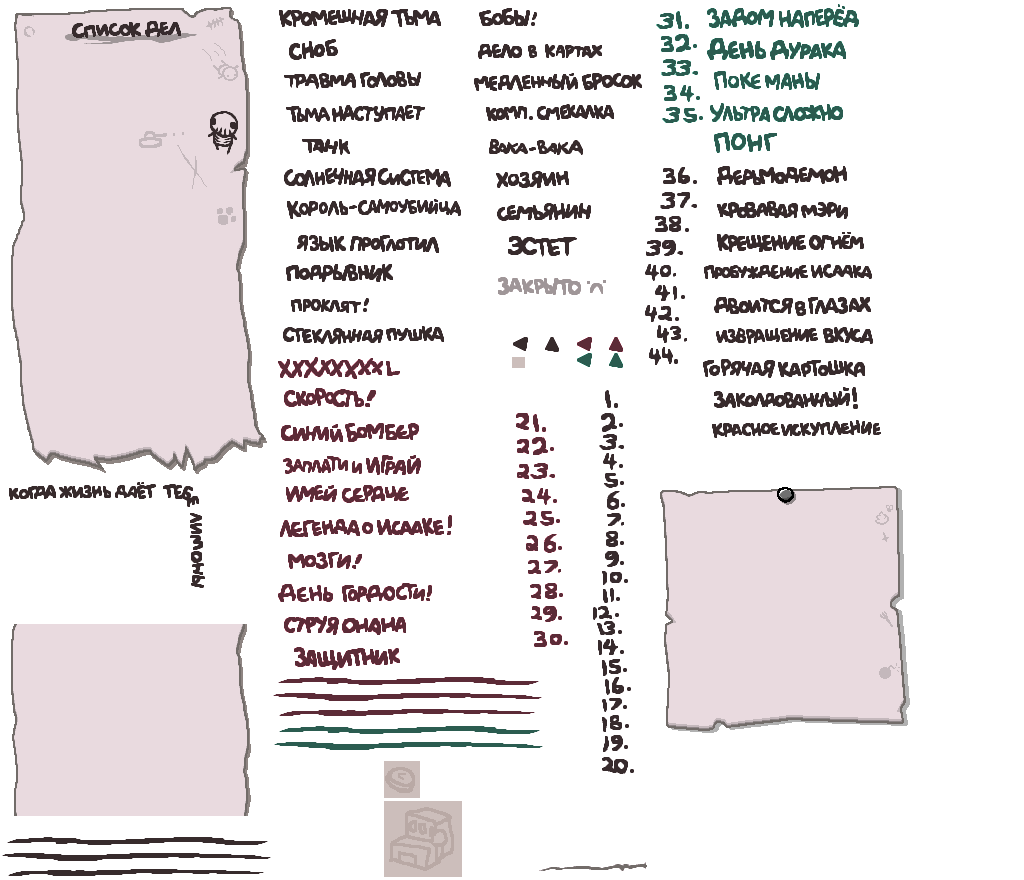 СПИСОК ДЕЛ
КОГДА ЖИЗНЬ ДАЁТ ТЕБЕ ЛИМОНЫ
КРОМЕШНАЯ ТЬМА
СНОБ
ТРАВМА ГОЛОВЫ
ТЬМА НАСТУПАЕТ
ТАНК
СОЛНЕЧНАЯ СИСТЕМА
КОРОЛЬ-САМОУБИЙЦА
ЯЗЫК ПРОГЛОТИЛ
ПОДРЫВНИК
ПРОКЛЯТ!
СТЕКЛЯННАЯ ПУШКА
XXXXXXXXL
СКОРОСТЬ!
СИНИЙ БОМБЕР
ЗАПЛАТИ И ИГРАЙ
ИМЕЙ СЕРДЦЕ
ЛЕГЕНДА О ИСААКЕ!
МОЗГИ!
ДЕНЬ ГОРДОСТИ!
СТРУЯ ОНАНА
ЗАЩИТНИК
БОБЫ!
ДЕЛО В КАРТАХ
МЕДЛЕННЫЙ БРОСОК
КОМП. СМЕКАЛКА
ВАКА-ВАКА
ХОЗЯИН
СЕМЬЯНИН
ЭСТЕТ
ЗАКРЫТО
21.
22.
23.
24.
25.
26.
27.
28.
29.
30.
1.
2.
3.
4.
5.
6.
7.
8.
9.
10.
11.
12.
13.
14.
15.
16.
17.
18.
19.
20.
31.
32.
33.
34.
35.
36.
37.
38.
39.
40.
41.
42.
43.
44.
ЗАДОМ НАПЕРЁД
ДЕНЬ ДУРАКА
ПОКЕ МАНЫ
УЛЬТРА СЛОЖНО
ПОНГ
ДЕРЬМОДЕМОН
КРОВАВАЯ МЭРИ
КРЕЩЕНИЕ ОГНЁМ
ПРОБУЖДЕНИЕ ИСААКА
ДВОИТСЯ В ГЛАЗАХ
ИЗВРАЩЕНИЕ ВКУСА
ГОРЯЧАЯ КАРТОШКА
ЗАКОЛДОВАННЫЙ!
КРАСНОЕ ИСКУПЛЕНИЕ